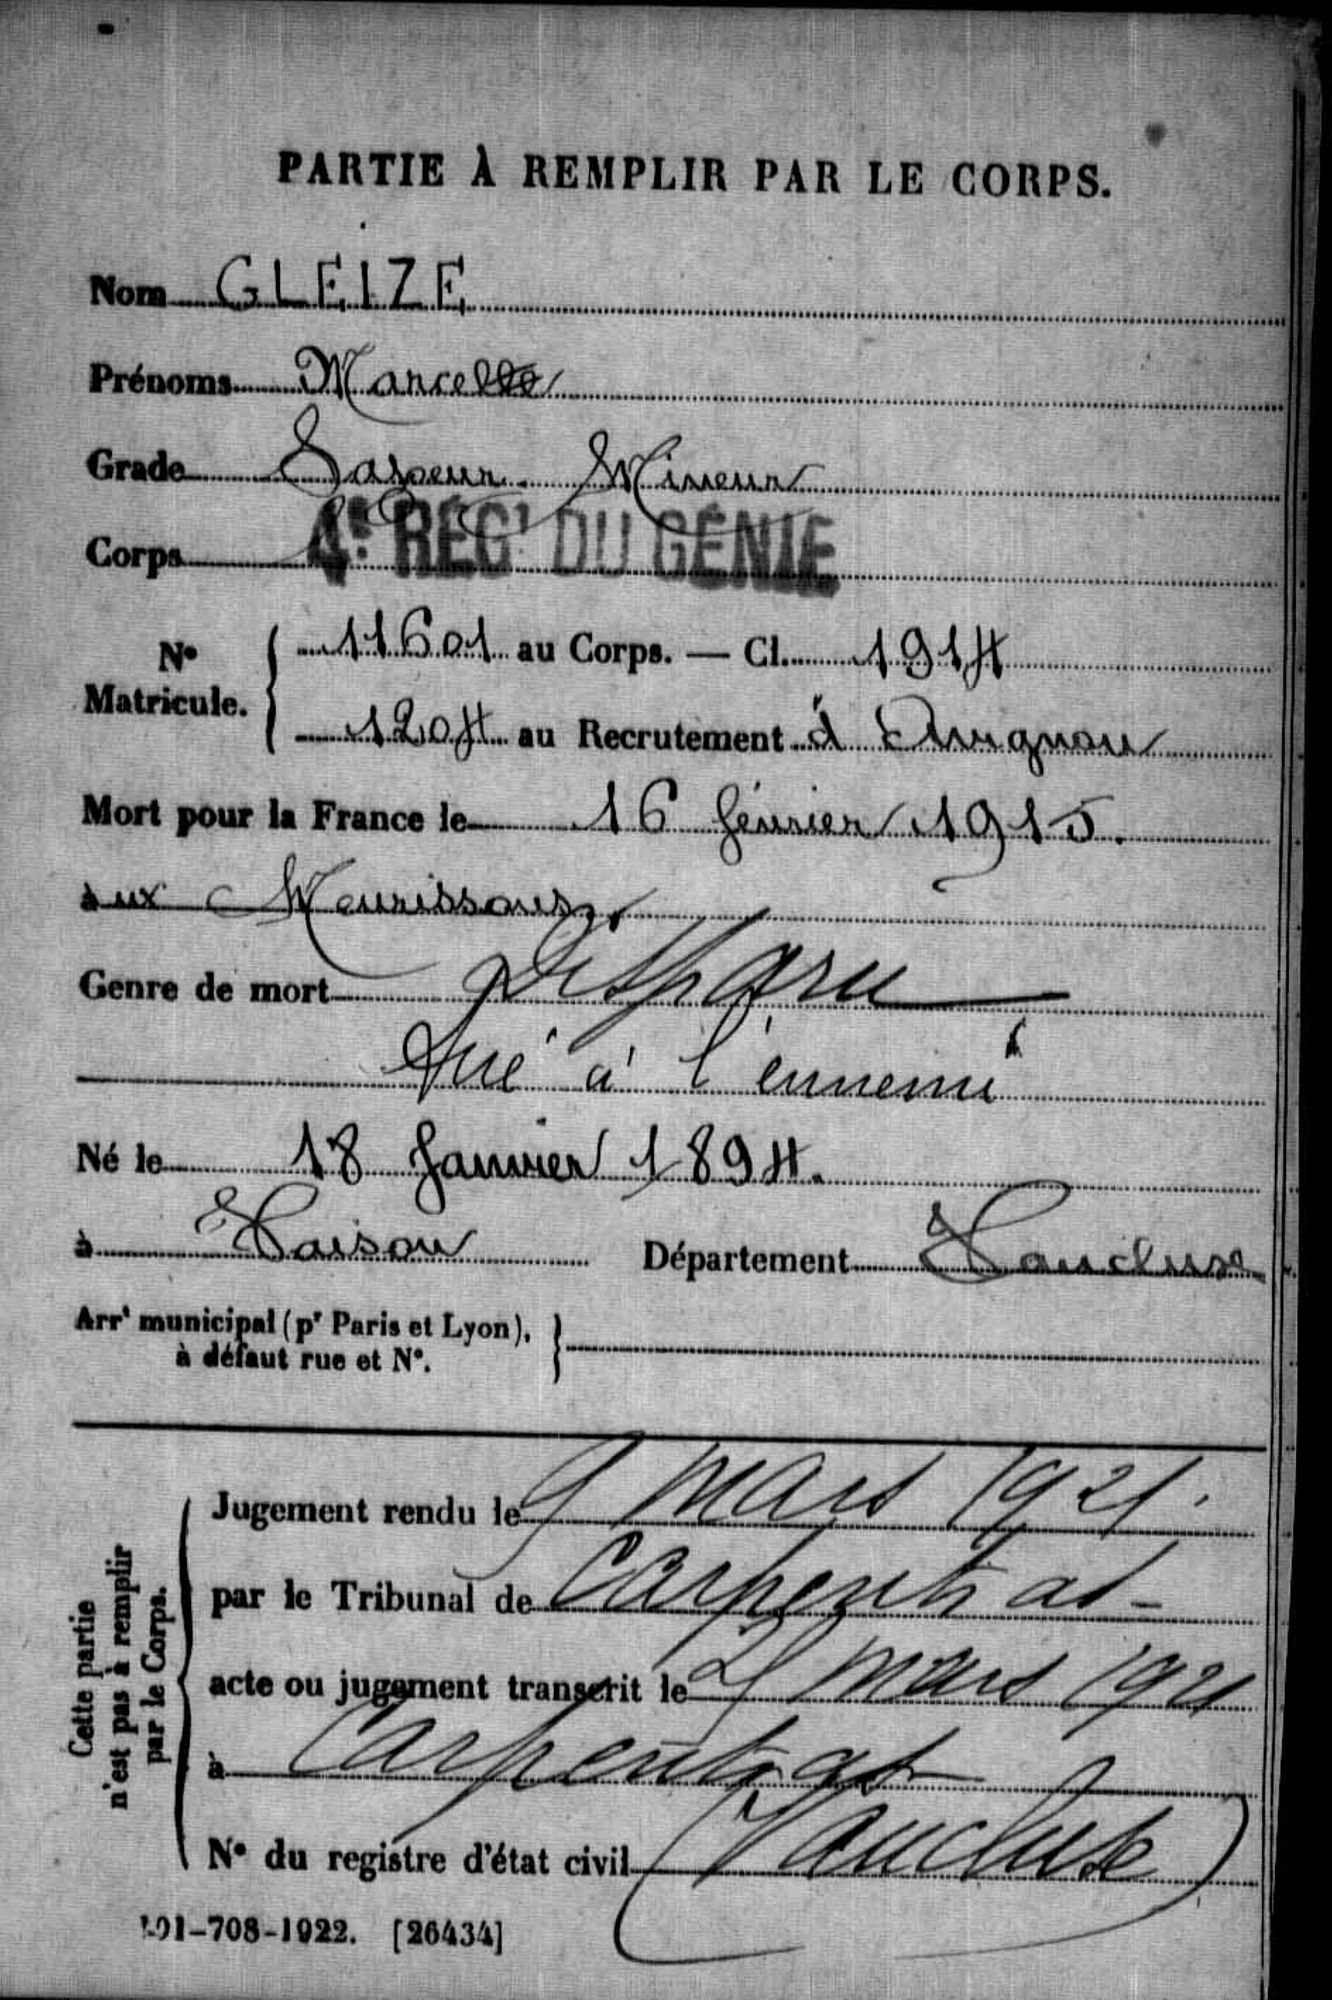 PARTIE À REMPLIR PAR LE CORPS.
Nom GLEIZE
Prénoms Marcel
Grade Sapeur Mineur
Corps 4e RÉGt DU GÉNIE
N° Matricule. 11601 au Corps. — Cl. 1914
1204 au Recrutement à Avignon
Mort pour la France le 16 février 1915.
aux Meurissons
Genre de mort Disparu
Tué à l'ennemi
Né le 18 Janvier 1894.
à Vaison Département Vaucluse
Arrt municipal (pr Paris et Lyon),
à défaut rue et N°.
Cette partie
n'est pas à remplir
par le Corps.
Jugement rendu le 9 mars 1921.
par le Tribunal de Carpentras
acte ou jugement transcrit le mars 1921
à Carpentras
N° du registre d'état civil (Vaucluse)
-708-1922. [26434]